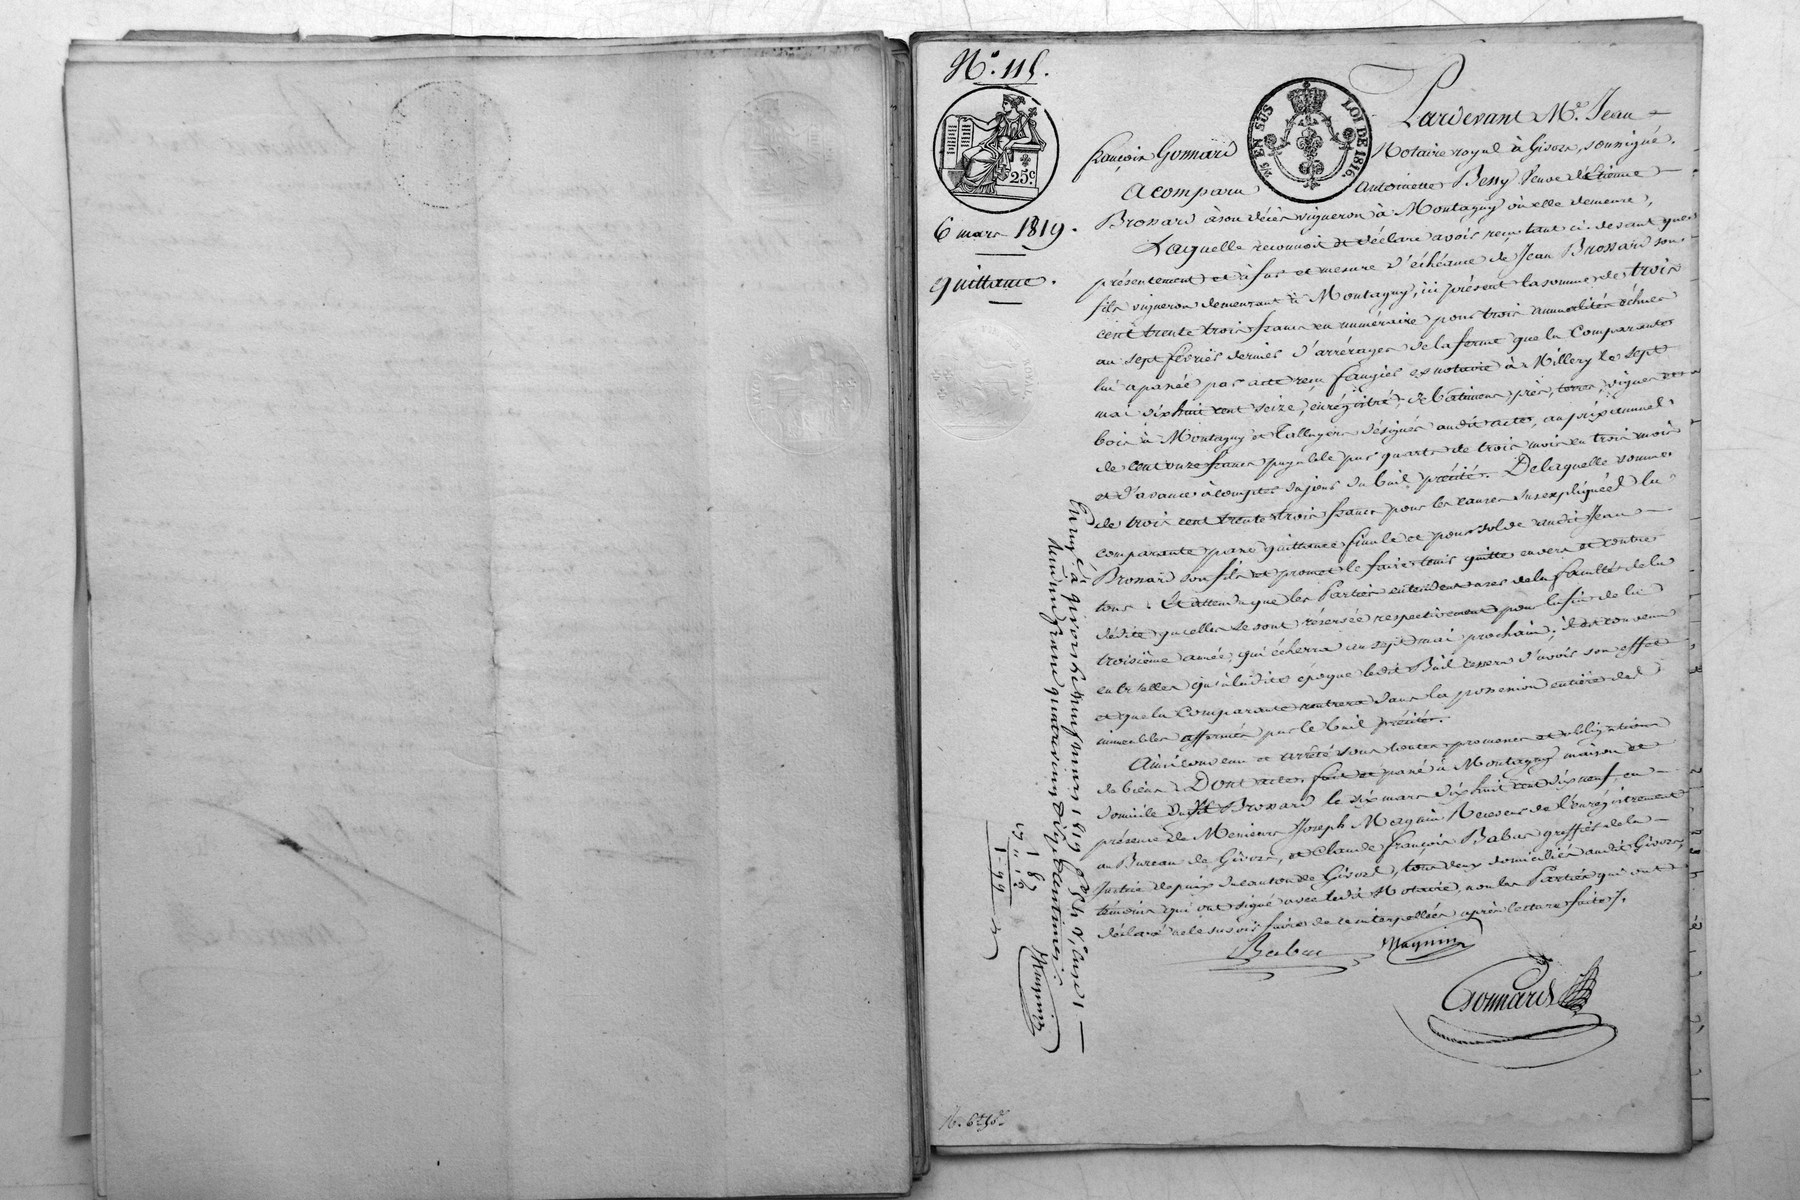 N.° 115.
25c.
6 mars 1819.
quittance.
¼ EN SUS
LOI DE 1816.
Pardevant M.e Jean
françois Gonnard Notaire royal à Givors, soussigné,
A comparu Antoinette Bessy veuve d'Etienne
Brossard à son décès vigneron à Montagny où elle demeure,
Laquelle reconnoit et déclare avoir reçu tant ci-devant que
présentement et à fur et mesure d'échéance de Jean Brossard son
fils vigneron demeurant à Montagny, ici présent la somme de trois
cent trente trois francs en numéraire pour trois annualités échues
au sept février dernier d'arrérages de la ferme que la Comparante
lui a passée par acte reçu faugier ex notaire à Millery le sept
mai dix huit cent seize, enrégistré, de batimens, prés, terres, vignes et
bois à Montagny et Talluyers désignés audit acte, au prix annuel
de cent onze francs payable par quarts de trois mois en trois mois
et d'avance à compter du jour du bail précité. De laquelle somme
de trois cent trente trois francs pour les causes susexpliquées la
comparante passe quittance finale et pour solde audit Jean
Brossard son fils et promet le faire tenir quitte envers et contre
tous. Et attendu que les Parties entendent user de la faculté de la
dédite qu'elles se sont réservée respectivement pour la fin de la
troisième année, qui écherra au sept mai prochain, il est convenu
entr'elles qu'à ladite époque ledit Bail cessera d'avoir son effet
et que la Comparante rentrera dans la possession entière des
immeubles affermés par le bail précité.
Ainsi convenu et arrêté sous toutes promesses et obligations
de biens. Dont acte, fait et passé à Montagny maison et
domicile dudit Brossard le six mars dix huit cent dix neuf, en
présence de Messieurs Joseph Magnin Receveur de l'enrégistrement
au Bureau de Givors, et Claude françois Babue greffier de la
Justice de paix du canton de Givors, tous deux domiciliés audit Givors,
témoins qui ont signé avec ledit Notaire, non les Parties qui ont
déclaré ne le savoir faire de ce interpellées après lecture faite.
Babue Magnin
Gonnard
Enreg.é à givors le neuf mars 1819
Reçu un franc quatre vingt dix neuf centimes
Magnin